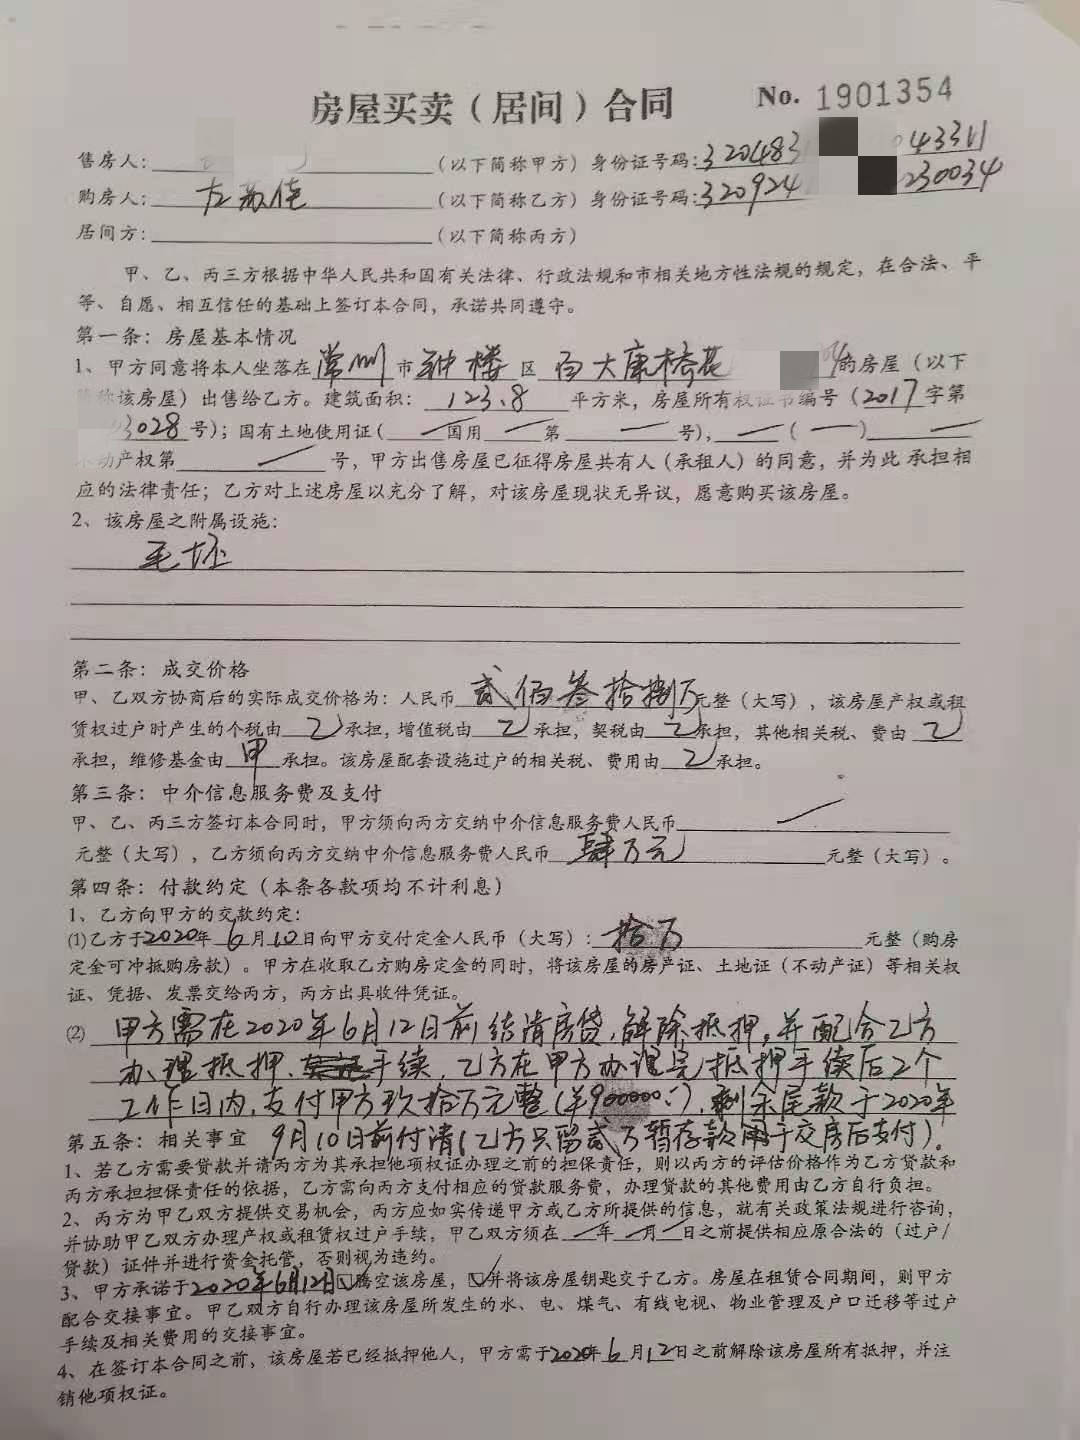 房屋买卖（居间）合同 No. 1901354
售房人： （以下简称甲方）身份证号码：320483 043311
购房人：左苏佳 （以下简称乙方）身份证号码：320924 230034
居间方： （以下简称丙方）
甲、乙、丙三方根据中华人民共和国有关法律、行政法规和市相关地方性法规的规定，在合法、平
等、自愿、相互信任的基础上签订本合同，承诺共同遵守。
第一条：房屋基本情况
1、甲方同意将本人坐落在常州市钟楼区百大康桥花 的房屋（以下
称该房屋）出售给乙方。建筑面积：123.8平方米，房屋所有权证书编号（2017字第
3028号）；国有土地使用证（ 国用 第 号）， （ ）
不动产权第 号，甲方出售房屋已征得房屋共有人（承租人）的同意，并为此承担相
应的法律责任；乙方对上述房屋以充分了解，对该房屋现状无异议，愿意购买该房屋。
2、该房屋之附属设施：
毛坯
第二条：成交价格
甲、乙双方协商后的实际成交价格为：人民币贰佰叁拾捌万元整（大写），该房屋产权或租
赁权过户时产生的个税由乙承担，增值税由乙承担，契税由乙承担，其他相关税、费由乙
承担，维修基金由甲承担。该房屋配套设施过户的相关税、费用由乙承担。
第三条：中介信息服务费及支付
甲、乙、丙三方签订本合同时，甲方须向丙方交纳中介信息服务费人民币
元整（大写），乙方须向丙方交纳中介信息服务费人民币肆万元元整（大写）。
第四条：付款约定（本条各款项均不计利息）
1、乙方向甲方的交款约定：
⑴乙方于2020年6月10日向甲方交付定金人民币（大写）：拾万元整（购房
定金可冲抵购房款）。甲方在收取乙方购房定金的同时，将该房屋的房产证、土地证（不动产证）等相关权
证、凭据、发票交给丙方，丙方出具收件凭证。
⑵甲方需在2020年6月12日前结清房贷，解除抵押，并配合乙方
办理抵押、手续，乙方在甲方办理完抵押手续后2个
工作日内，支付甲方玖拾万元整（¥900000），剩余尾款于2020年
第五条：相关事宜 9月10日前付清（乙方只留贰万暂存款用于交房后支付）。
1、若乙方需要贷款并请丙方为其承担他项权证办理之前的担保责任，则以丙方的评估价格作为乙方贷款和
丙方承担担保责任的依据，乙方需向丙方支付相应的贷款服务费，办理贷款的其他费用由乙方自行负担。
2、丙方为甲乙双方提供交易机会，丙方应如实传递甲方或乙方所提供的信息，就有关政策法规进行咨询，
并协助甲乙双方办理产权或租赁权过户手续，甲乙双方须在 年 月 日之前提供相应原合法的（过户/
贷款）证件并进行资金托管，否则视为违约。
3、甲方承诺于2020年6月12日☑腾空该房屋，☑并将该房屋钥匙交于乙方。房屋在租赁合同期间，则甲方
配合交接事宜。甲乙双方自行办理该房屋所发生的水、电、煤气、有线电视、物业管理及户口迁移等过户
手续及相关费用的交接事宜。
4、在签订本合同之前，该房屋若已经抵押他人，甲方需于2020年6月12日之前解除该房屋所有抵押，并注
销他项权证。